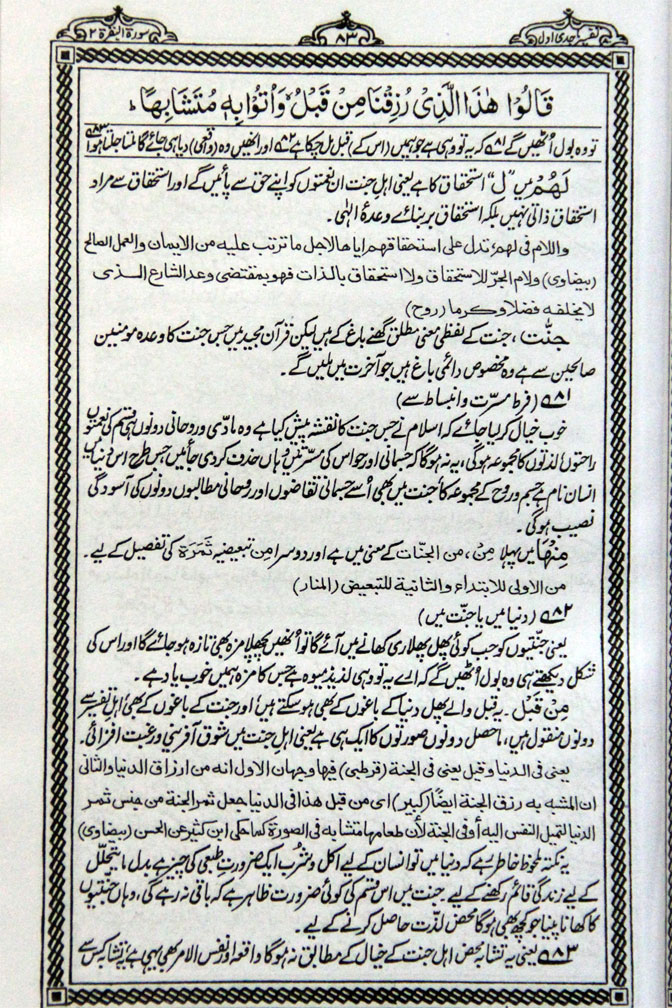 تفسیر ماجدی اول
۸۳
سورۃ البقرۃ ۲
قَالُوْا هٰذَا الَّذِیْ رُزِقْنَا مِنْ قَبْلُ ۙ وَاُتُوْا بِهٖ مُتَشَابِهًا ؕ
تو وہ بول اُٹھیں گے ۸۱ کہ یہ تو وہی ہے جو ہمیں (اس کے) قبل مل چکا ہے ۸۲ اور انھیں وہ (واقعی) دیا ہی جائے گا ملتا جلتا ہوا ۸۳
لَهُمْ میں "ل" استحقاق کا ہے یعنی اہل جنت ان نعمتوں کو اپنے حق سے پائیں گے اور استحقاق سے مراد
استحقاق ذاتی نہیں بلکہ استحقاق بر بنائے وعدۂ الٰہی۔
واللام فی لهم تدل علی استحقاقهم ایاها لاجل ما ترتب علیه من الایمان والعمل الصالح
(بیضاوی) ولام الجرّ للاستحقاق ولا استحقاق بالذات فهو بمقتضی وعد الشارع الذی
لا یخلفه فضلا و کرما (روح)
جنّٰت، جنت کے لفظی معنی مطلق گھنے باغ کے ہیں لیکن قرآن مجید میں جس جنت کا وعدہ مومنین
صالحین سے ہے وہ مخصوص دائمی باغ ہیں جو آخرت میں ملیں گے۔
۸۱ (فرط مسرّت و انبساط سے)
خوب خیال کر لیا جائے کہ اسلام نے جس جنت کا نقشہ پیش کیا ہے وہ مادّی و روحانی دونوں ہی قسم کی نعمتوں
راحتوں لذتوں کا مجموعہ ہوگی، یہ نہ ہوگا کہ جسمانی اور حواس کی مسرتیں وہاں حذف کر دی جائیں جس طرح اس دنیا میں
انسان نام ہے جسم و روح کے مجموعہ کا جنت میں بھی اُسے جسمانی تقاضوں اور روحانی مطالبوں دونوں کی آسودگی
نصیب ہوگی۔
مِنْهَا میں پہلا مِنْ، من الجنّات کے معنی میں ہے اور دوسرا مِن تبعیضیہ ثَمَرَة کی تفصیل کے لیے۔
من الاولی للابتداء والثانیة للتبعیض (المنار)
۸۲ (دنیا میں یا جنّت میں)
یعنی جنّتیوں کو جب کوئی پھل پھلاری کھانے میں آئے گا تو انھیں پچھلا مزہ بھی تازہ ہو جائے گا اور اس کی
شکل دیکھتے ہی وہ بول اُٹھیں گے کہ اے یہ تو وہی لذیذ میوہ ہے جس کا مزہ ہمیں خوب یاد ہے۔
مِنْ قَبْلُ۔ یہ قبل والے پھل دنیا کے باغوں کے بھی ہو سکتے ہیں اور جنت کے باغوں کے بھی، اہل تفسیر سے
دونوں منقول ہیں، ماحصل دونوں صورتوں کا ایک ہی ہے یعنی اہل جنت میں شوق آفرینی و رغبت افزائی۔
یعنی فی الدنیا وقیل یعنی فی الجنة (قرطبی) فیها وجهان الاول انه من ارزاق الدنیا والثانی
ان المشبه به رزق الجنة ایضًا (کبیر) ای من قبل هذا فی الدنیا جعل ثمر الجنة من جنس ثمر
الدنیا لتمیل النفس الیه او فی الجنة لأن طعامها متشابه فی الصورة کما حکی ابن کثیر عن الحسن (بیضاوی)
یہ نکتہ ملحوظ خاطر رہے کہ دنیا میں تو انسان کے لیے اکل و شرب ایک ضرورتِ طبعی کی چیز ہے بدل ما یتحلّل
کے لیے زندگی قائم رکھنے کے لیے۔ جنت میں اس قسم کی کوئی ضرورت ظاہر ہے کہ باقی نہ رہے گی، وہاں جنّتیوں
کا کھانا پینا جو کچھ بھی ہوگا محض لذّت حاصل کرنے کے لیے۔
۸۳ یعنی یہ تشابہ محض اہل جنت کے خیال کے مطابق نہ ہوگا واقعہ اور نفس الامر بھی یہی ہے، یہ تشابہ کس سے